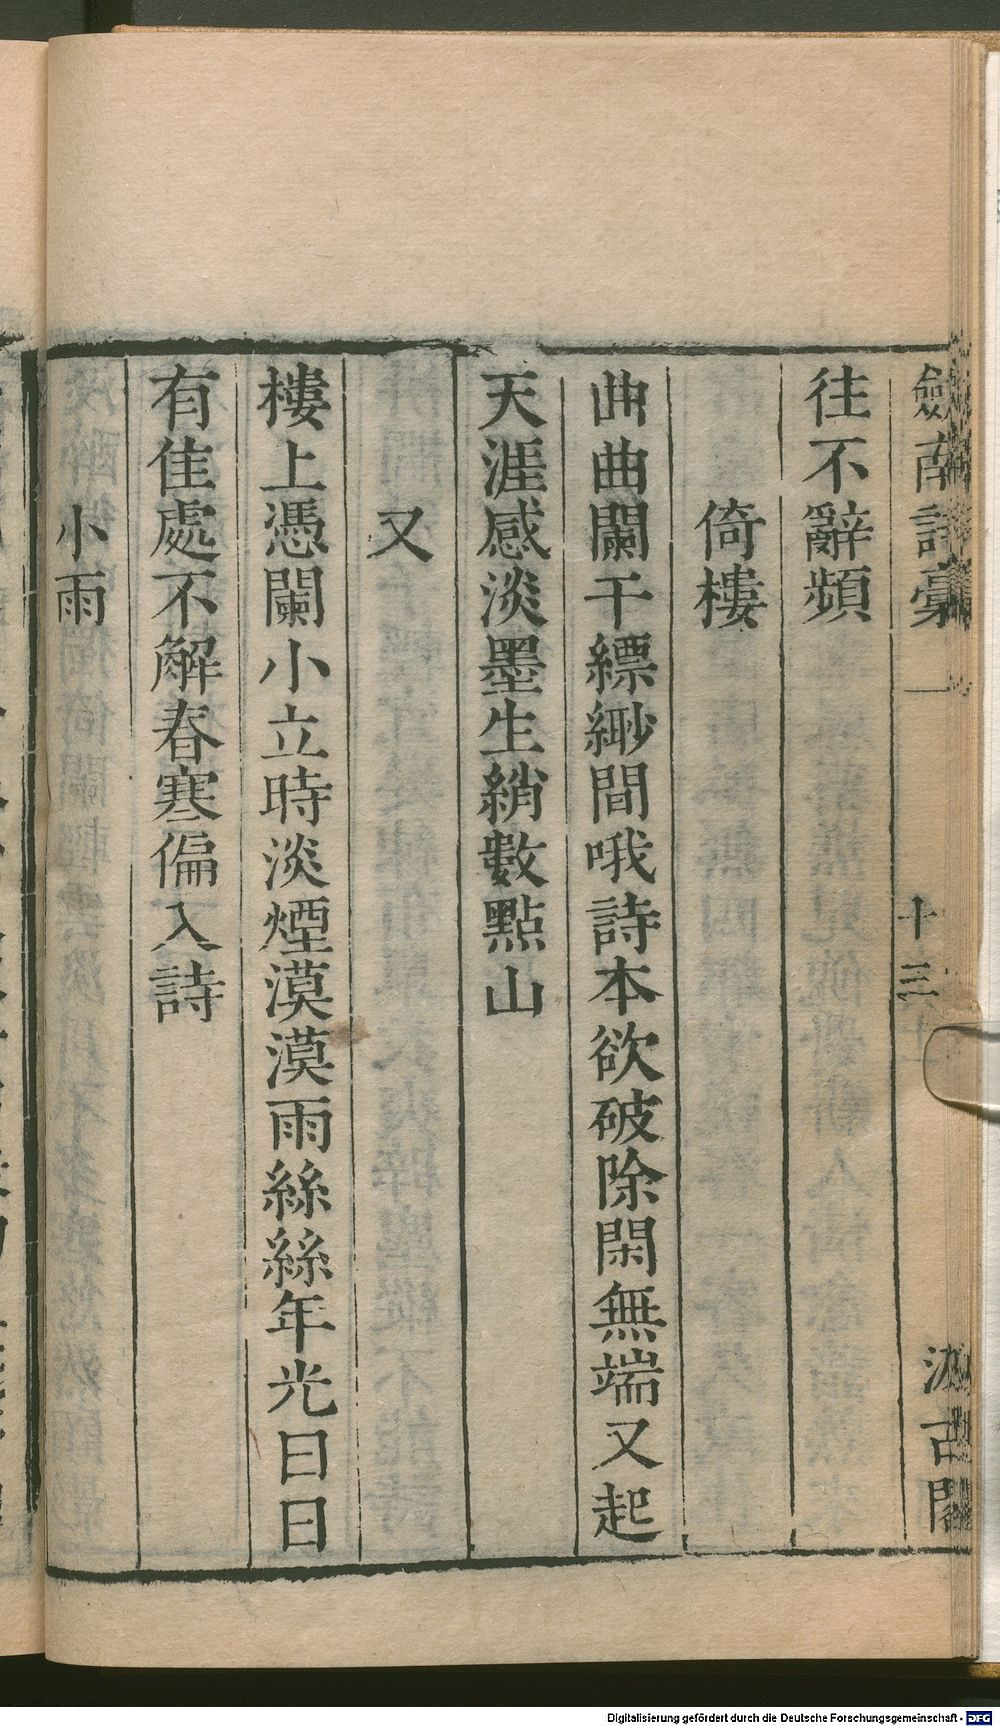 劍南詩稾 一 十三 汲古閣
往不辭頻
倚樓
曲曲闌干縹緲間哦詩本欲破除閑無端又起
天涯感淡墨生綃數點山
又
樓上憑闌小立時淡煙漠漠雨絲絲年光日日
有佳處不解春寒偏入詩
小雨
Digitalisierung gefördert durch die Deutsche Forschungsgemeinschaft - DFG